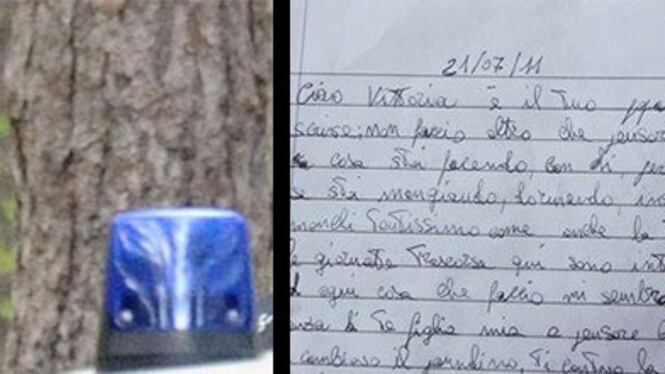 21/07/11
Ciao Vittoria è il tuo
scusa; non faccio altro che pensare
cosa stai facendo, con chi,
se stai mangiando, dormendo,
manchi tantissimo come anche la
giornata trascorsa qui sono
ogni cosa che faccio mi
senza di te figlia mia a pensare
il pannolino, ti